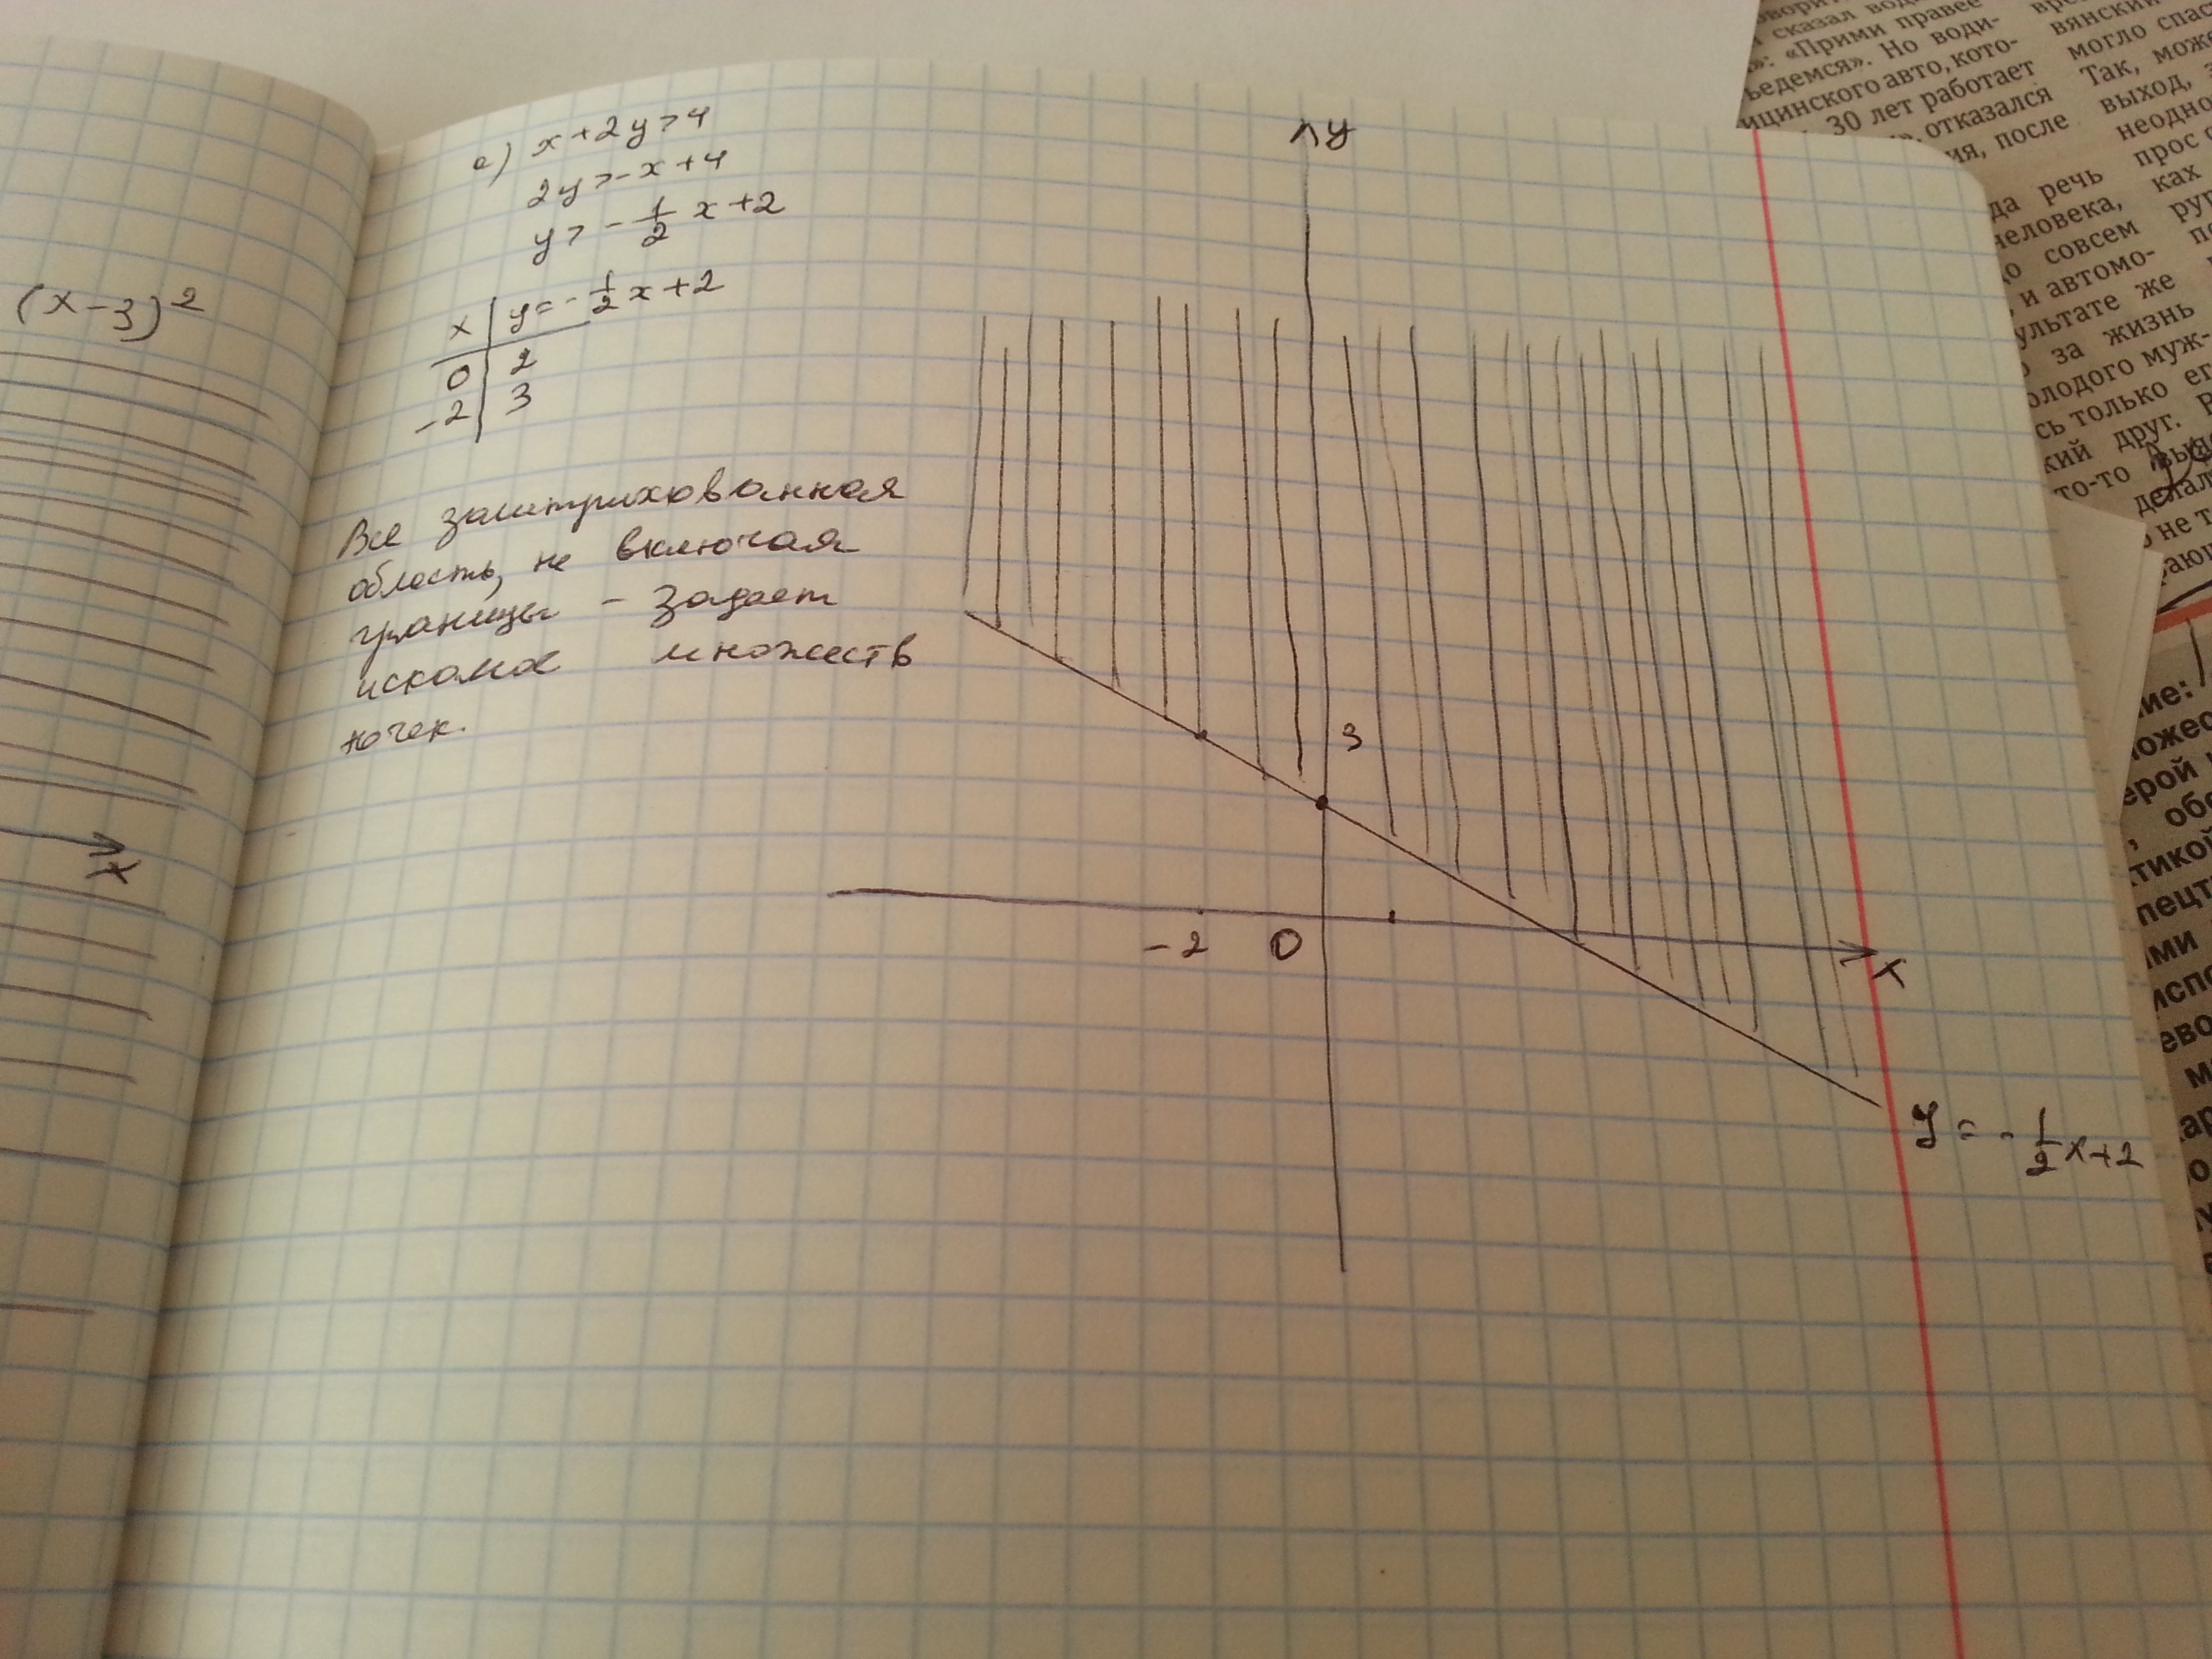 (x-3)²
x
e) x+2y>4
2y>-x+4
y>-1/2 x+2
x | y=-1/2 x+2
0 | 2
-2 | 3
Все заштрихованная
область, не включая
границы - задает
искомое множеств
точек.
y
3
-2 0
x
y = -1/2 x+2
сказал
»: «Прими правее
ъедемся». Но води-
ицинского авто, кото-
30 лет работает
отказался
ия, после
вянский
могло спас
Так, може
выход,
неодно
прос
да речь
человека,
до совсем
и автомо-
ультате же
за жизнь
олодого муж-
сь только ег
кий друг.
то-то
как
делал
не т
ие:
ожес
ерой
обе
тикой
пецт
ими
испо
ево
м